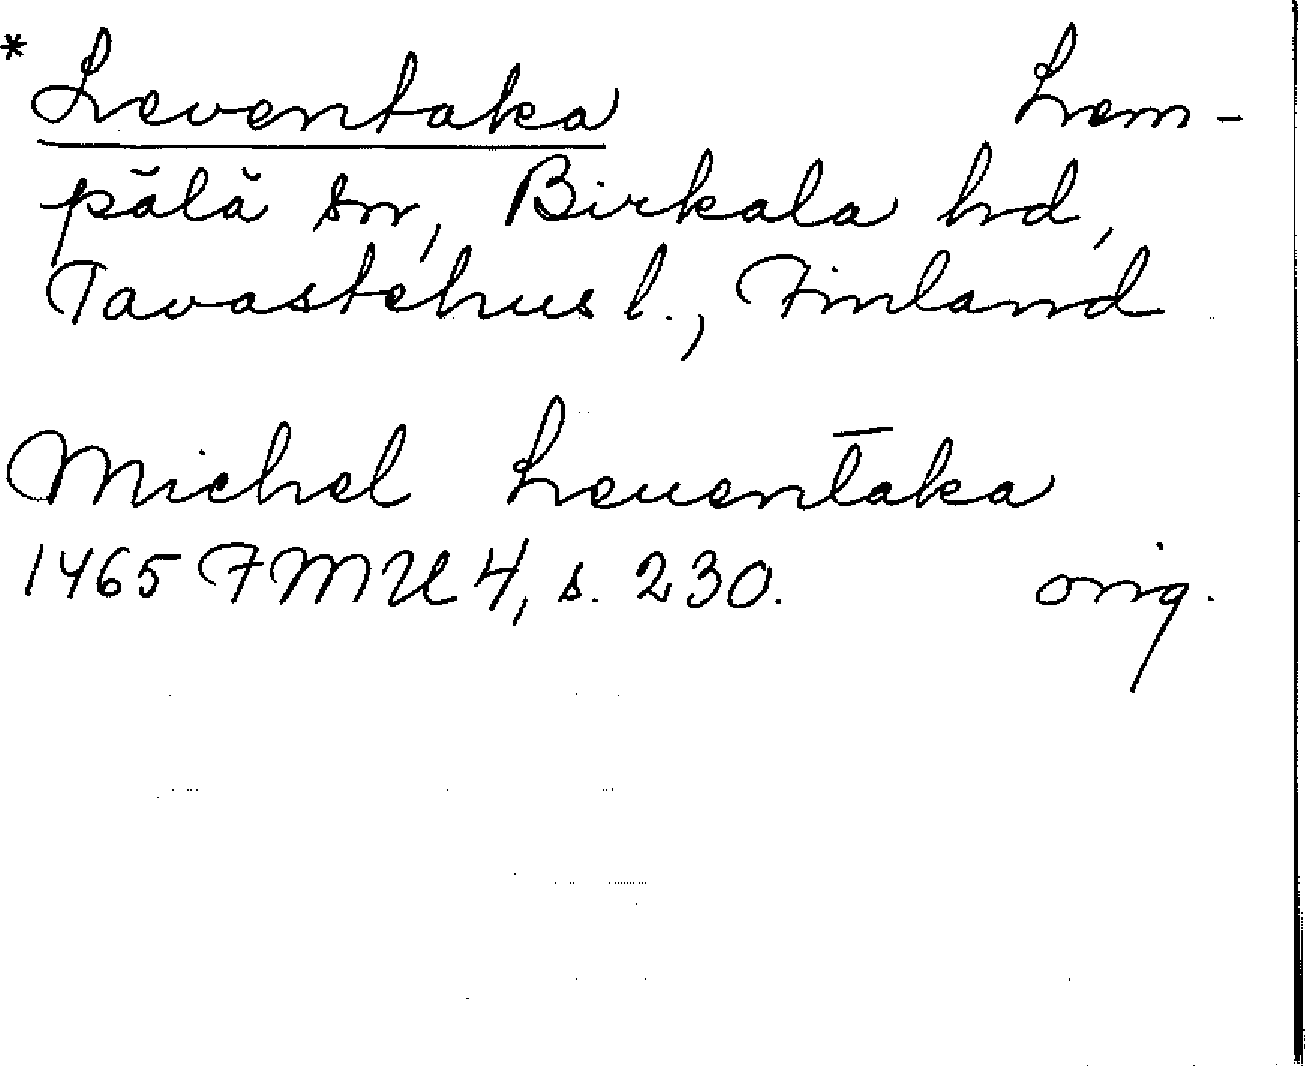 * Leventaka Lem-
pälä sn, Birkala hd,
Tavastehus l., Finland
Michel Leuentaka
1465 FMU 4, s. 230. orig.